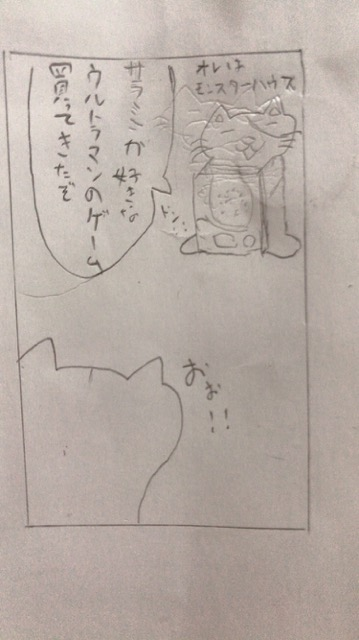 オレは
モンスターハウス
サラミが好きな
ウルトラマンのゲーム
買ってきたぞ
ドン!!
おぉ!!